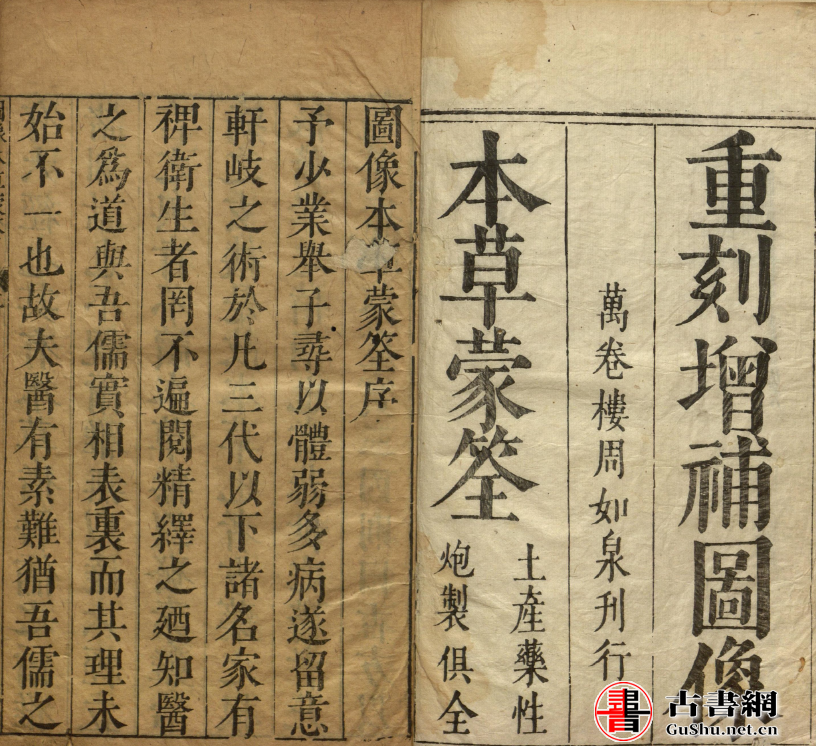 重刻增補圖像
萬卷樓周如泉刊行
本草蒙筌
土產藥性
炮製俱全
圖像本草蒙筌序
予少業舉子尋以體弱多病遂留意
軒岐之術於凡三代以下諸名家有
裨衛生者罔不遍閱精繹之廼知醫
之為道與吾儒實相表裏而其理未
始不一也故夫醫有素難猶吾儒之
書 古書網
GuShu.net.cn